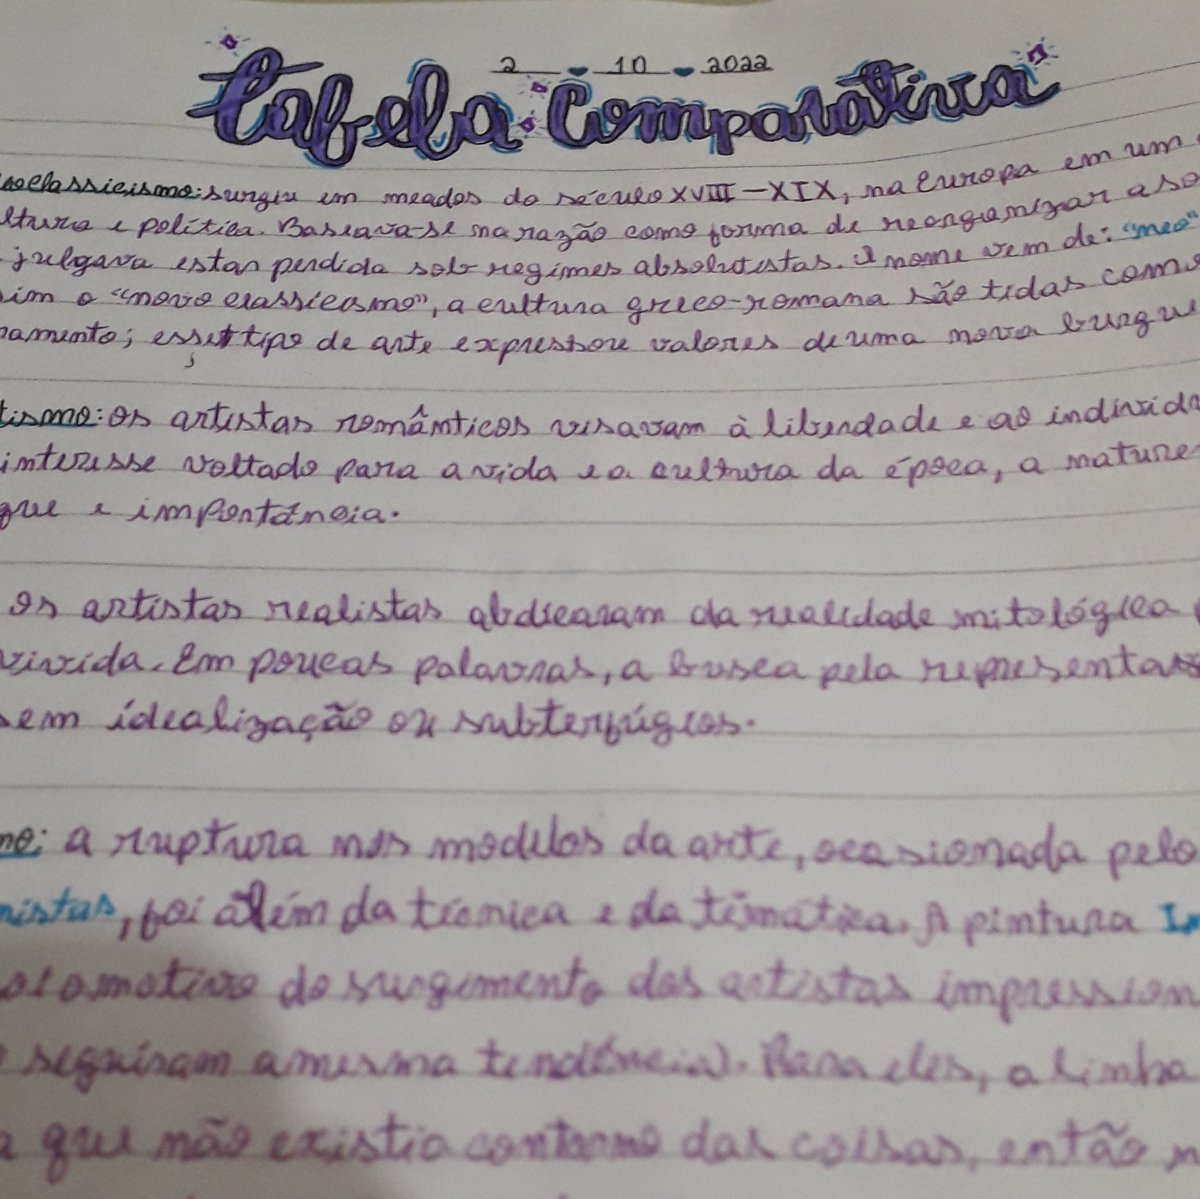 2 10 2022
Tabela Comparativa
neoclassicismo: surgiu em meados do século XVIII-XIX, na Europa em um
ltura e política. Baseava-se na razão como forma de reorganizar a so
julgava estar perdida sob regimes absolutistas. O nome vem de: "neo"
im o "novo classicismo", a cultura greco-romana são tidas como
namento; esse tipo de arte expressou valores de uma nova burgue
tismo: os artistas românticos visavam à liberdade e ao individu
interesse voltado para a vida e a cultura da época, a nature
que e importância.
os artistas realistas abdicaram da realidade mitológica
vivida. Em poucas palavras, a busca pela representa
sem idealização ou subterfúgios.
mo: a ruptura nos modelos da arte, ocasionada pelo
nistas, foi além da técnica e da temática. A pintura Im
motivo do surgimento dos artistas impression
seguiram a mesma tendência). Para eles, a linha
a que não existia contorno das coisas, então n